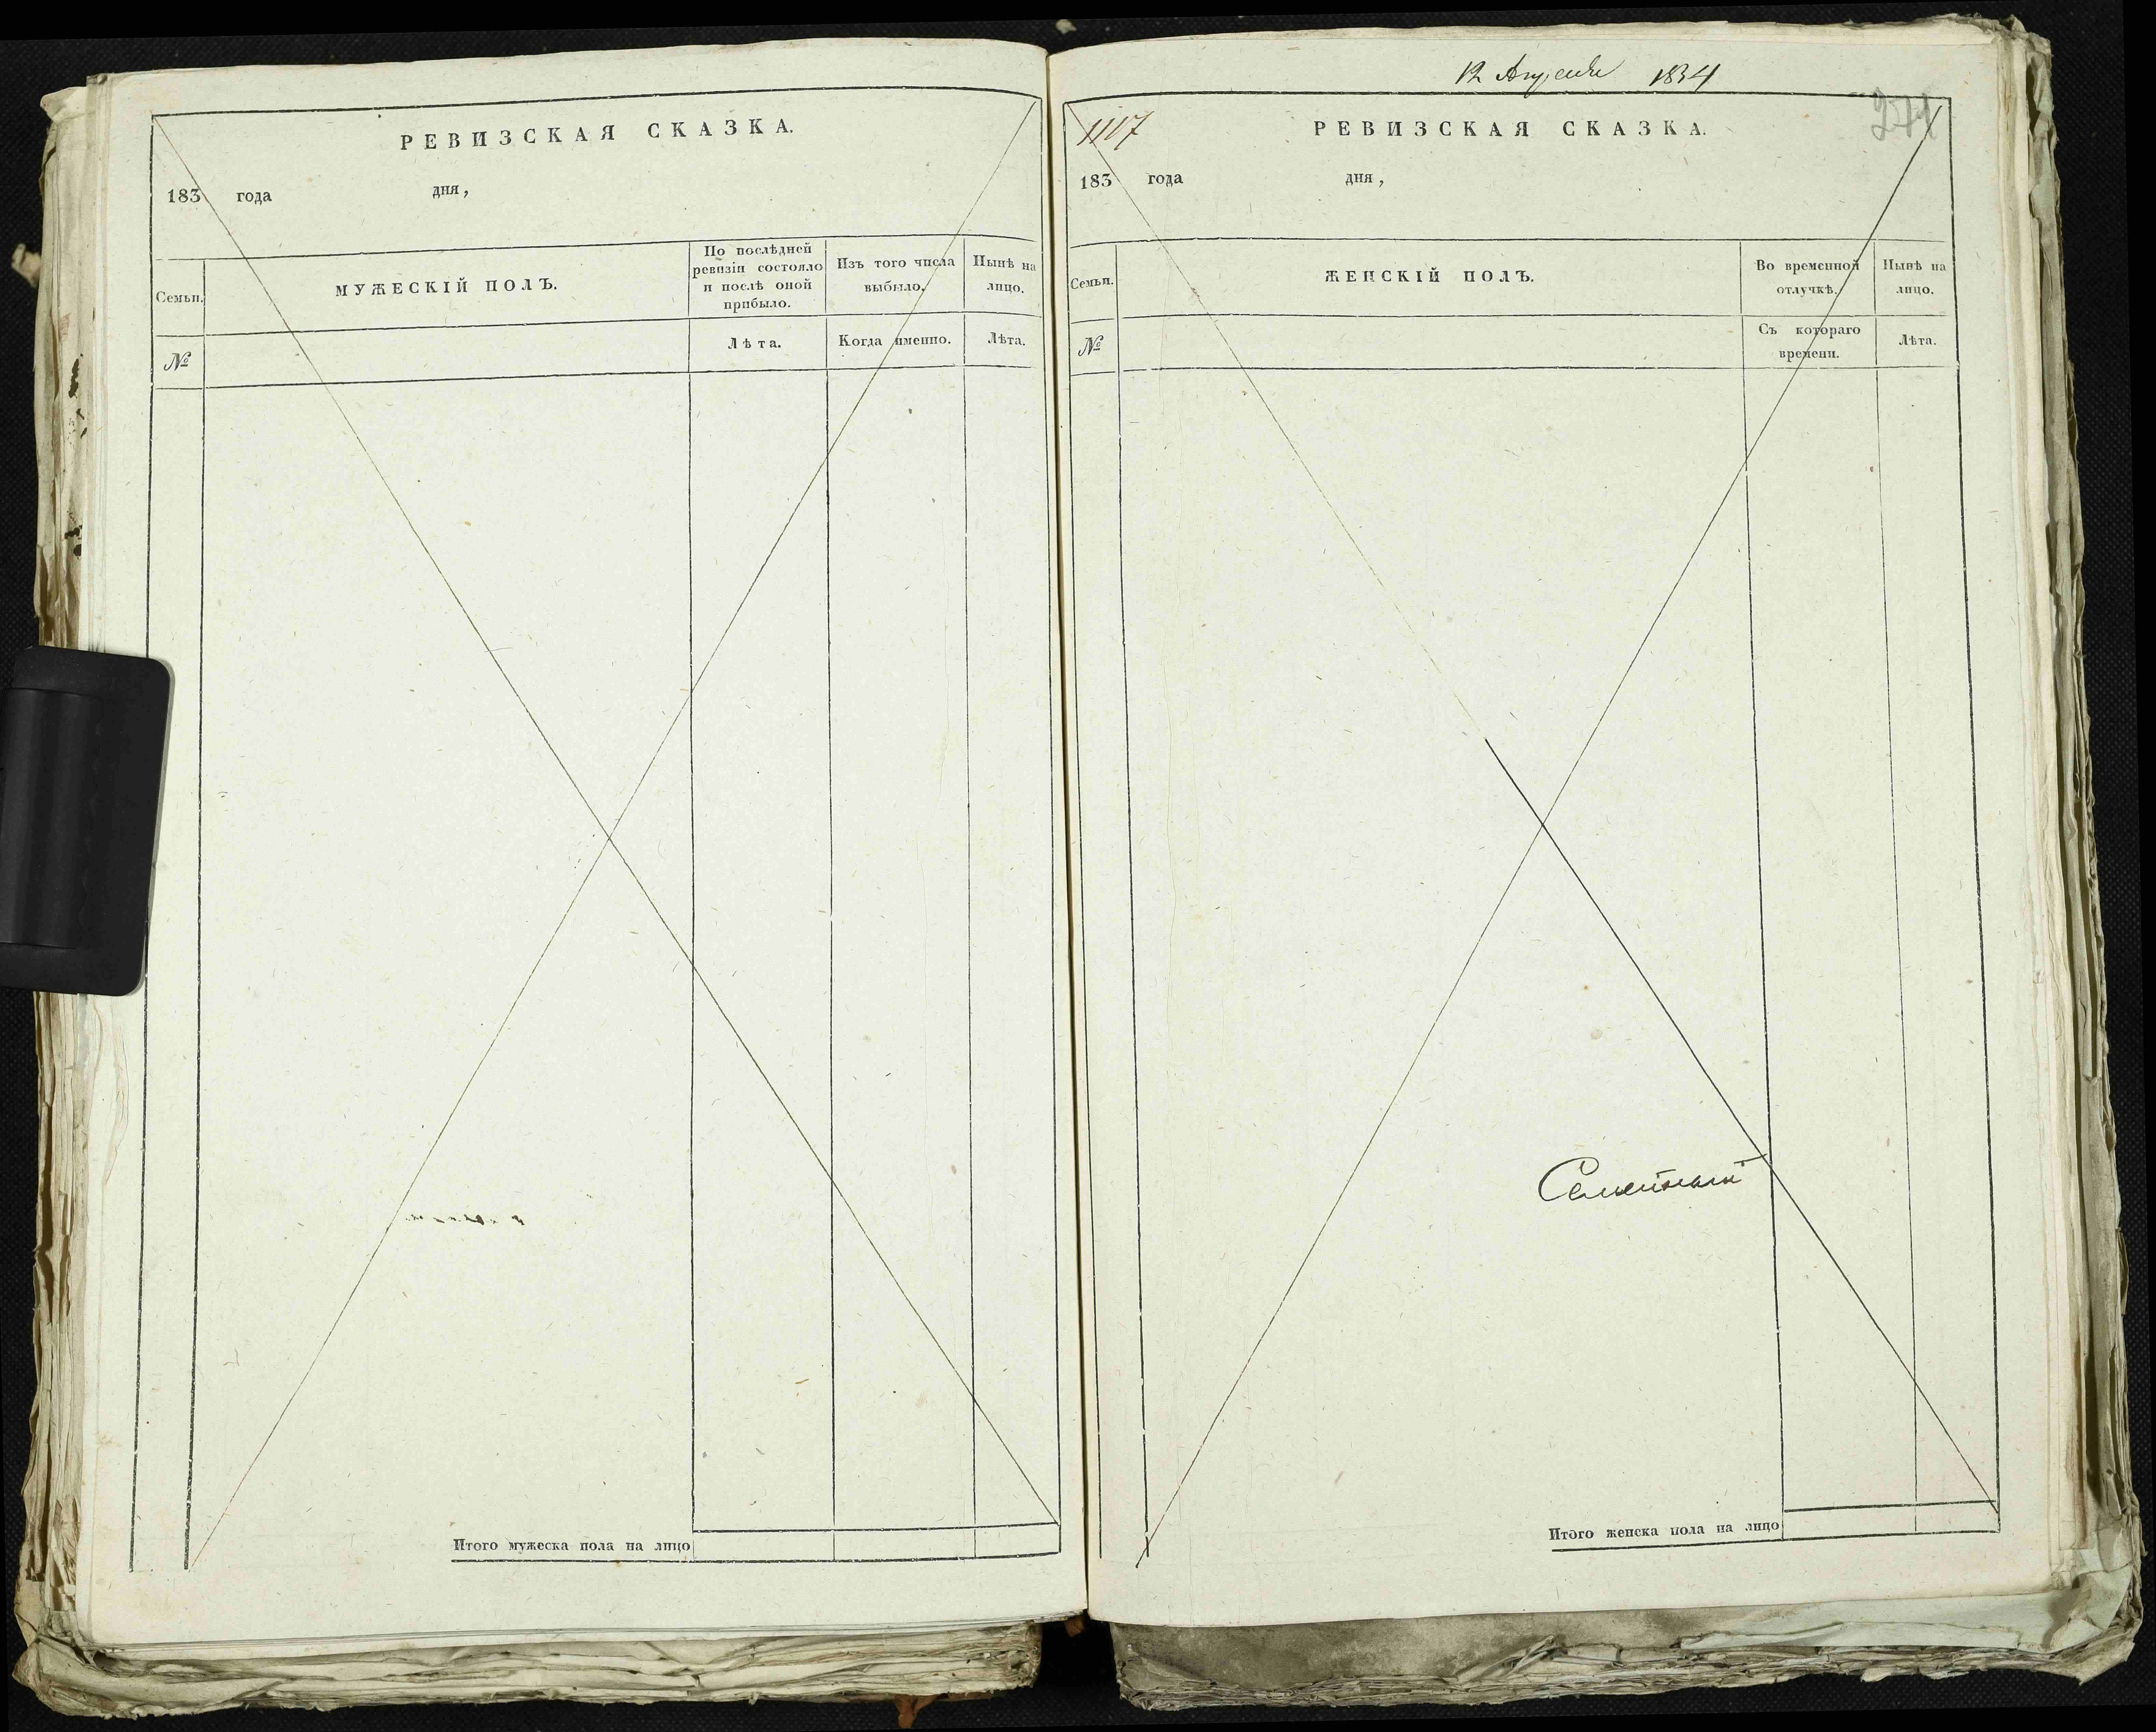 РЕВИЗСКАЯ СКАЗКА.
183 года дня,
Семьи.
МУЖЕСКІЙ ПОЛЪ.
По послѣдней ревизіи состояло и послѣ оной прибыло.
Изъ того числа выбыло.
Нынѣ на лицо.
№
Лѣта.
Когда именно.
Лѣта.
Итого мужеска пола на лицо
12 Апреля 1834
1117
РЕВИЗСКАЯ СКАЗКА.
183 года дня,
Семьи.
ЖЕНСКІЙ ПОЛЪ.
Во временной отлучкѣ.
Нынѣ на лицо.
№
Съ котораго времени.
Лѣта.
Итого женска пола на лицо